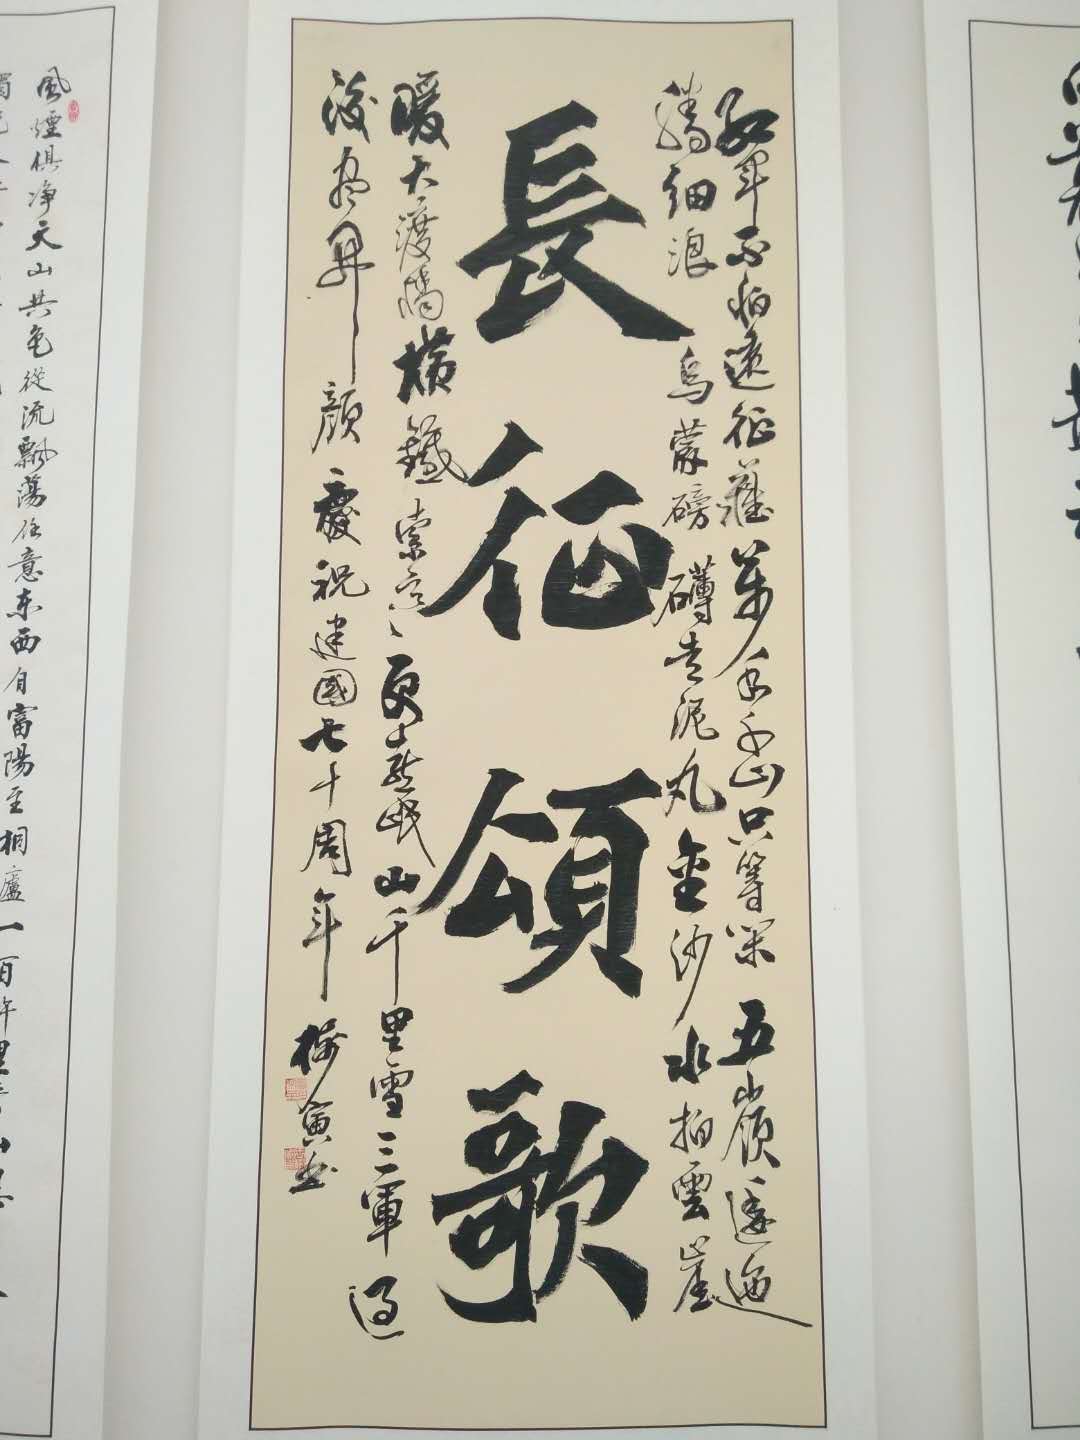 紅軍不怕遠征難萬水千山只等閑五嶺逶迤
騰細浪烏蒙磅礴走泥丸金沙水拍雲崖
長征頌歌
暖大渡橋橫鐵索寒更喜岷山千里雪三軍過
後盡開顏慶祝建國七十周年寅书
風煙俱净天山共色從流飄蕩任意东西自富陽至桐廬一百許里